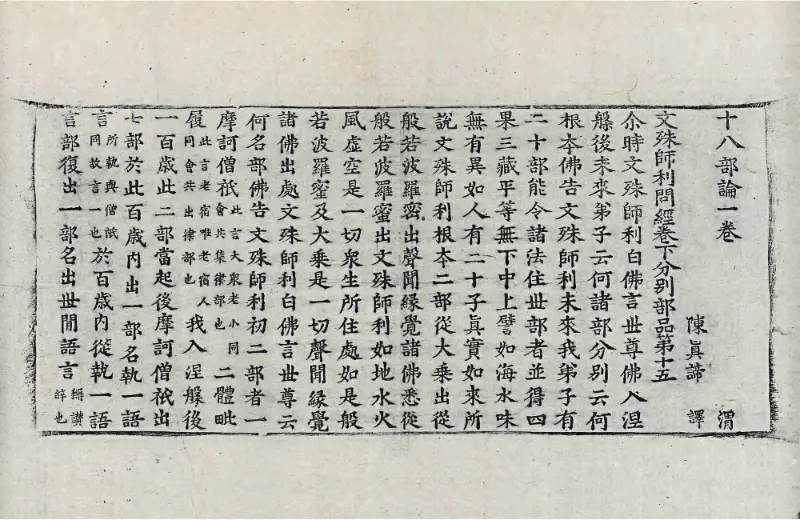 十八部論一卷　渭
陳眞諦　譯
文殊師利問經卷下分別部品第十五
尒時文殊師利白佛言世尊佛入涅
槃後未來弟子云何諸部分別云何
根夲佛告文殊師利未來我弟子有
二十部能令諸法住世部者並得四
果三藏平等無下中上譬如海水味
無有異如人有二十子眞實如來所
說文殊師利根夲二部從大乗出從
般若波羅蜜出聲聞緣覺諸佛悉從
般若波羅蜜出文殊師利如地水火
風虛空是一切衆生所住處如是般
若波羅蜜及大乗是一切聲聞緣覺
諸佛出處文殊師利白佛言世尊云
何名部佛告文殊師利初二部者一
摩訶僧祇此言大衆老小同會共集律部也二體毗
履此言老宿唯老宿人同會共出律部也我入涅槃後
一百歲此二部當起後摩訶僧祇出
七部於此百歲内出一部名執一語
言所執與僧祇同故言一也於百歲内從執一語
言部復出一部名出世閒語言稱讃辝也